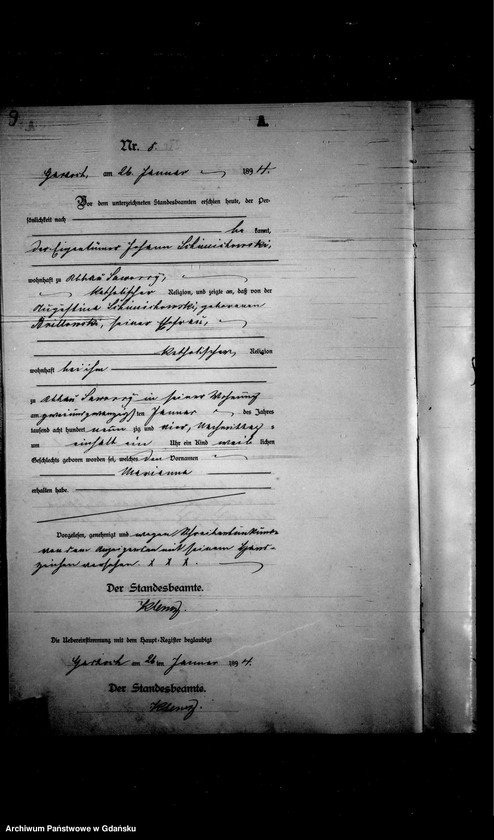 9
A.
Nr. 8.
am 26. Januar 1894.
Vor dem unterzeichneten Standesbeamten erschien heute, der Per-
sönlichkeit nach
be kannt,
der Eigentümer Johann
wohnhaft zu Abbau
katholischer Religion, und zeigte an, daß von der
Augustina geborenen
seiner Ehefrau,
katholischer Religion
wohnhaft bei ihm
zu Abbau in seiner Wohnung
am zweiundzwanzig ten Januar des Jahres
tausend acht hundert neun zig und vier, Nachmittags
um einhalb ein Uhr ein Kind weib lichen
Geschlechts geboren worden sei, welches den Vornamen
Marianna
erhalten habe.
Vorgelesen, genehmigt und wegen Schreibensunkunde
von dem Anzeigenden mit seinem Hand-
zeichen versehen. x x x.
Der Standesbeamte.
Die Uebereinstimmung mit dem Haupt-Register beglaubigt
am 26 ten Januar 1894.
Der Standesbeamte.
Archiwum Państwowe w Gdańsku